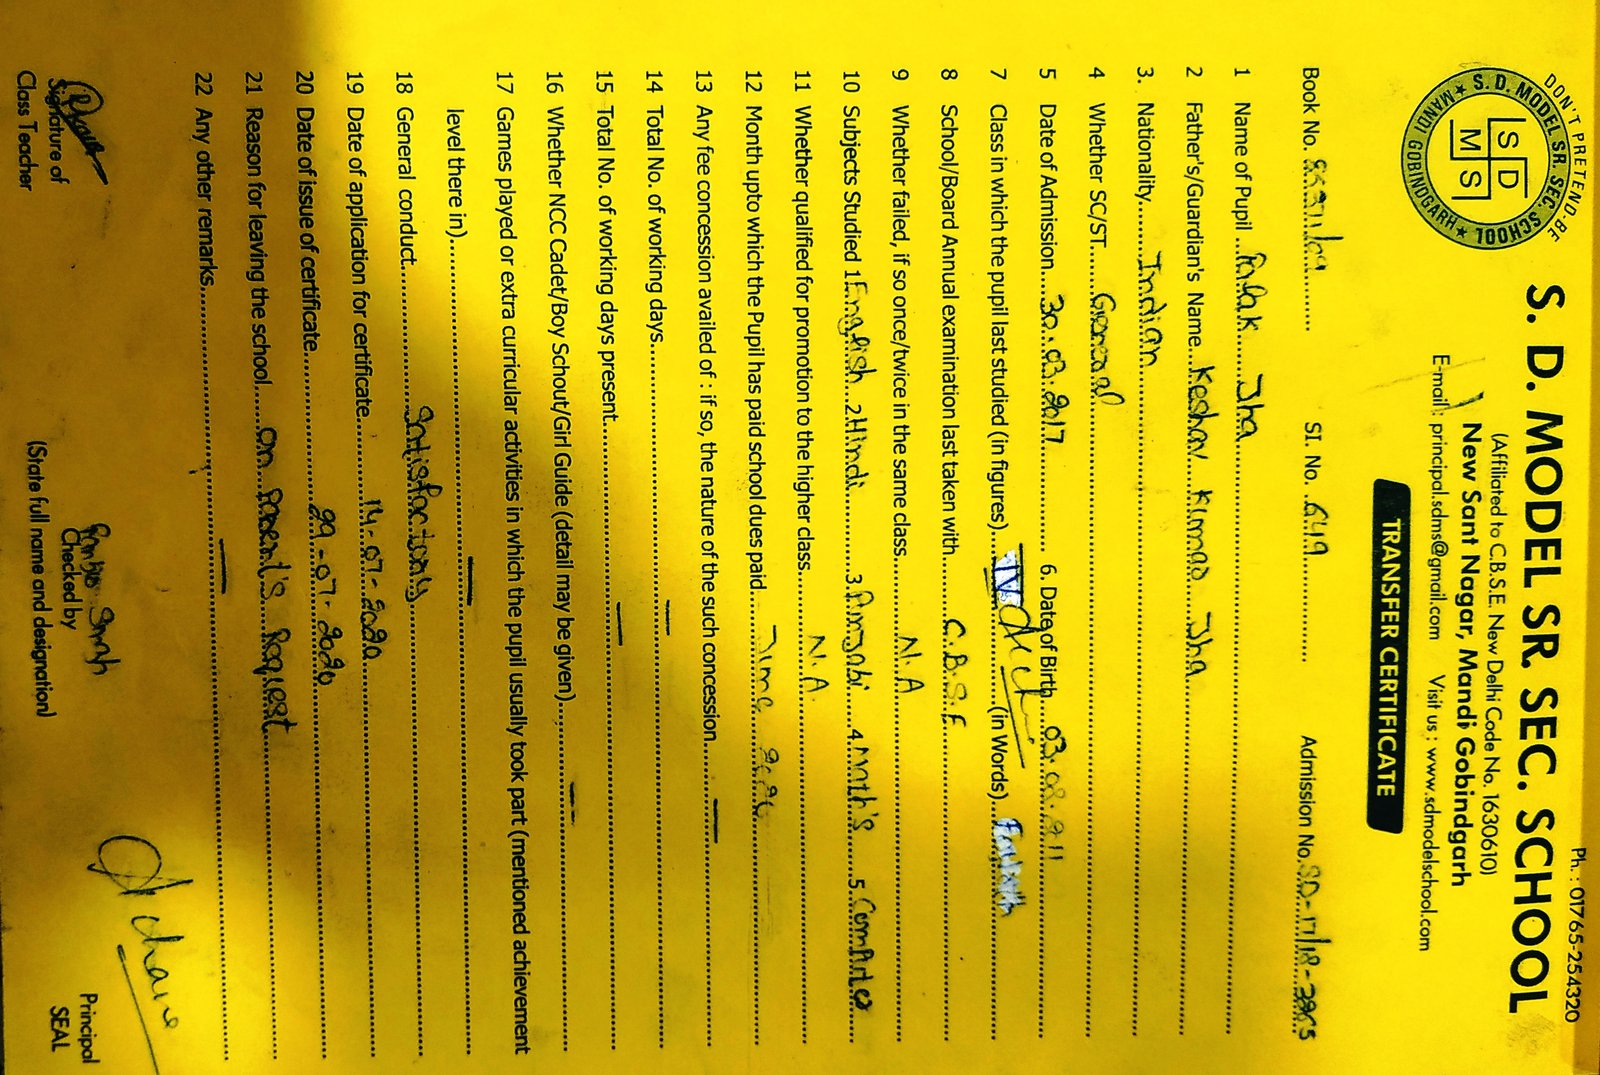 Ph.: 01765-254320
DON'T PRETEND-BE
S. D. MODEL SR. SEC. SCHOOL
MANDI GOBINDGARH
S D
M S
S. D. MODEL SR. SEC. SCHOOL
(Affiliated to C.B.S.E. New Delhi Code No. 1630610)
New Sant Nagar, Mandi Gobindgarh
E-mail : principal.sdms@gmail.com Visit us : www.sdmodelschool.com
TRANSFER CERTIFICATE
Book No. SI. No. 649 Admission No. SD-17/18-
1 Name of Pupil Palak Jha
2 Father's/Guardian's Name Keshav Kumar Jha
3. Nationality Indian
4 Whether SC/ST General
5 Date of Admission 30.03.2017 6. Date of Birth 03.08.
7 Class in which the pupil last studied (in figures) IV (in Words)
8 School/Board Annual examination last taken with C.B.S.E
9 Whether failed, if so once/twice in the same class N.A
10 Subjects Studied 1 English 2 Hindi 3 Punjabi 4 Math's 5 Computer
11 Whether qualified for promotion to the higher class N.A
12 Month upto which the Pupil has paid school dues paid
13 Any fee concession availed of : if so, the nature of the such concession —
14 Total No. of working days —
15 Total No. of working days present —
16 Whether NCC Cadet/Boy Schout/Girl Guide (detail may be given) —
17 Games played or extra curricular activities in which the pupil usually took part (mentioned achievement
level there in) —
18 General conduct Satisfactory
19 Date of application for certificate 14-07-2020
20 Date of issue of certificate 29-07-2020
21 Reason for leaving the school on Parent's Request
22 Any other remarks —
Signature of
Class Teacher
Checked by
(State full name and designation)
Principal
SEAL